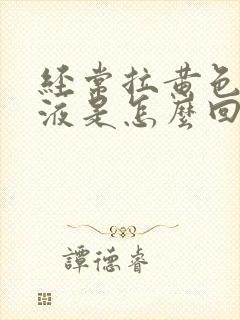 經常拉黃色
液是怎麼回
譚德睿